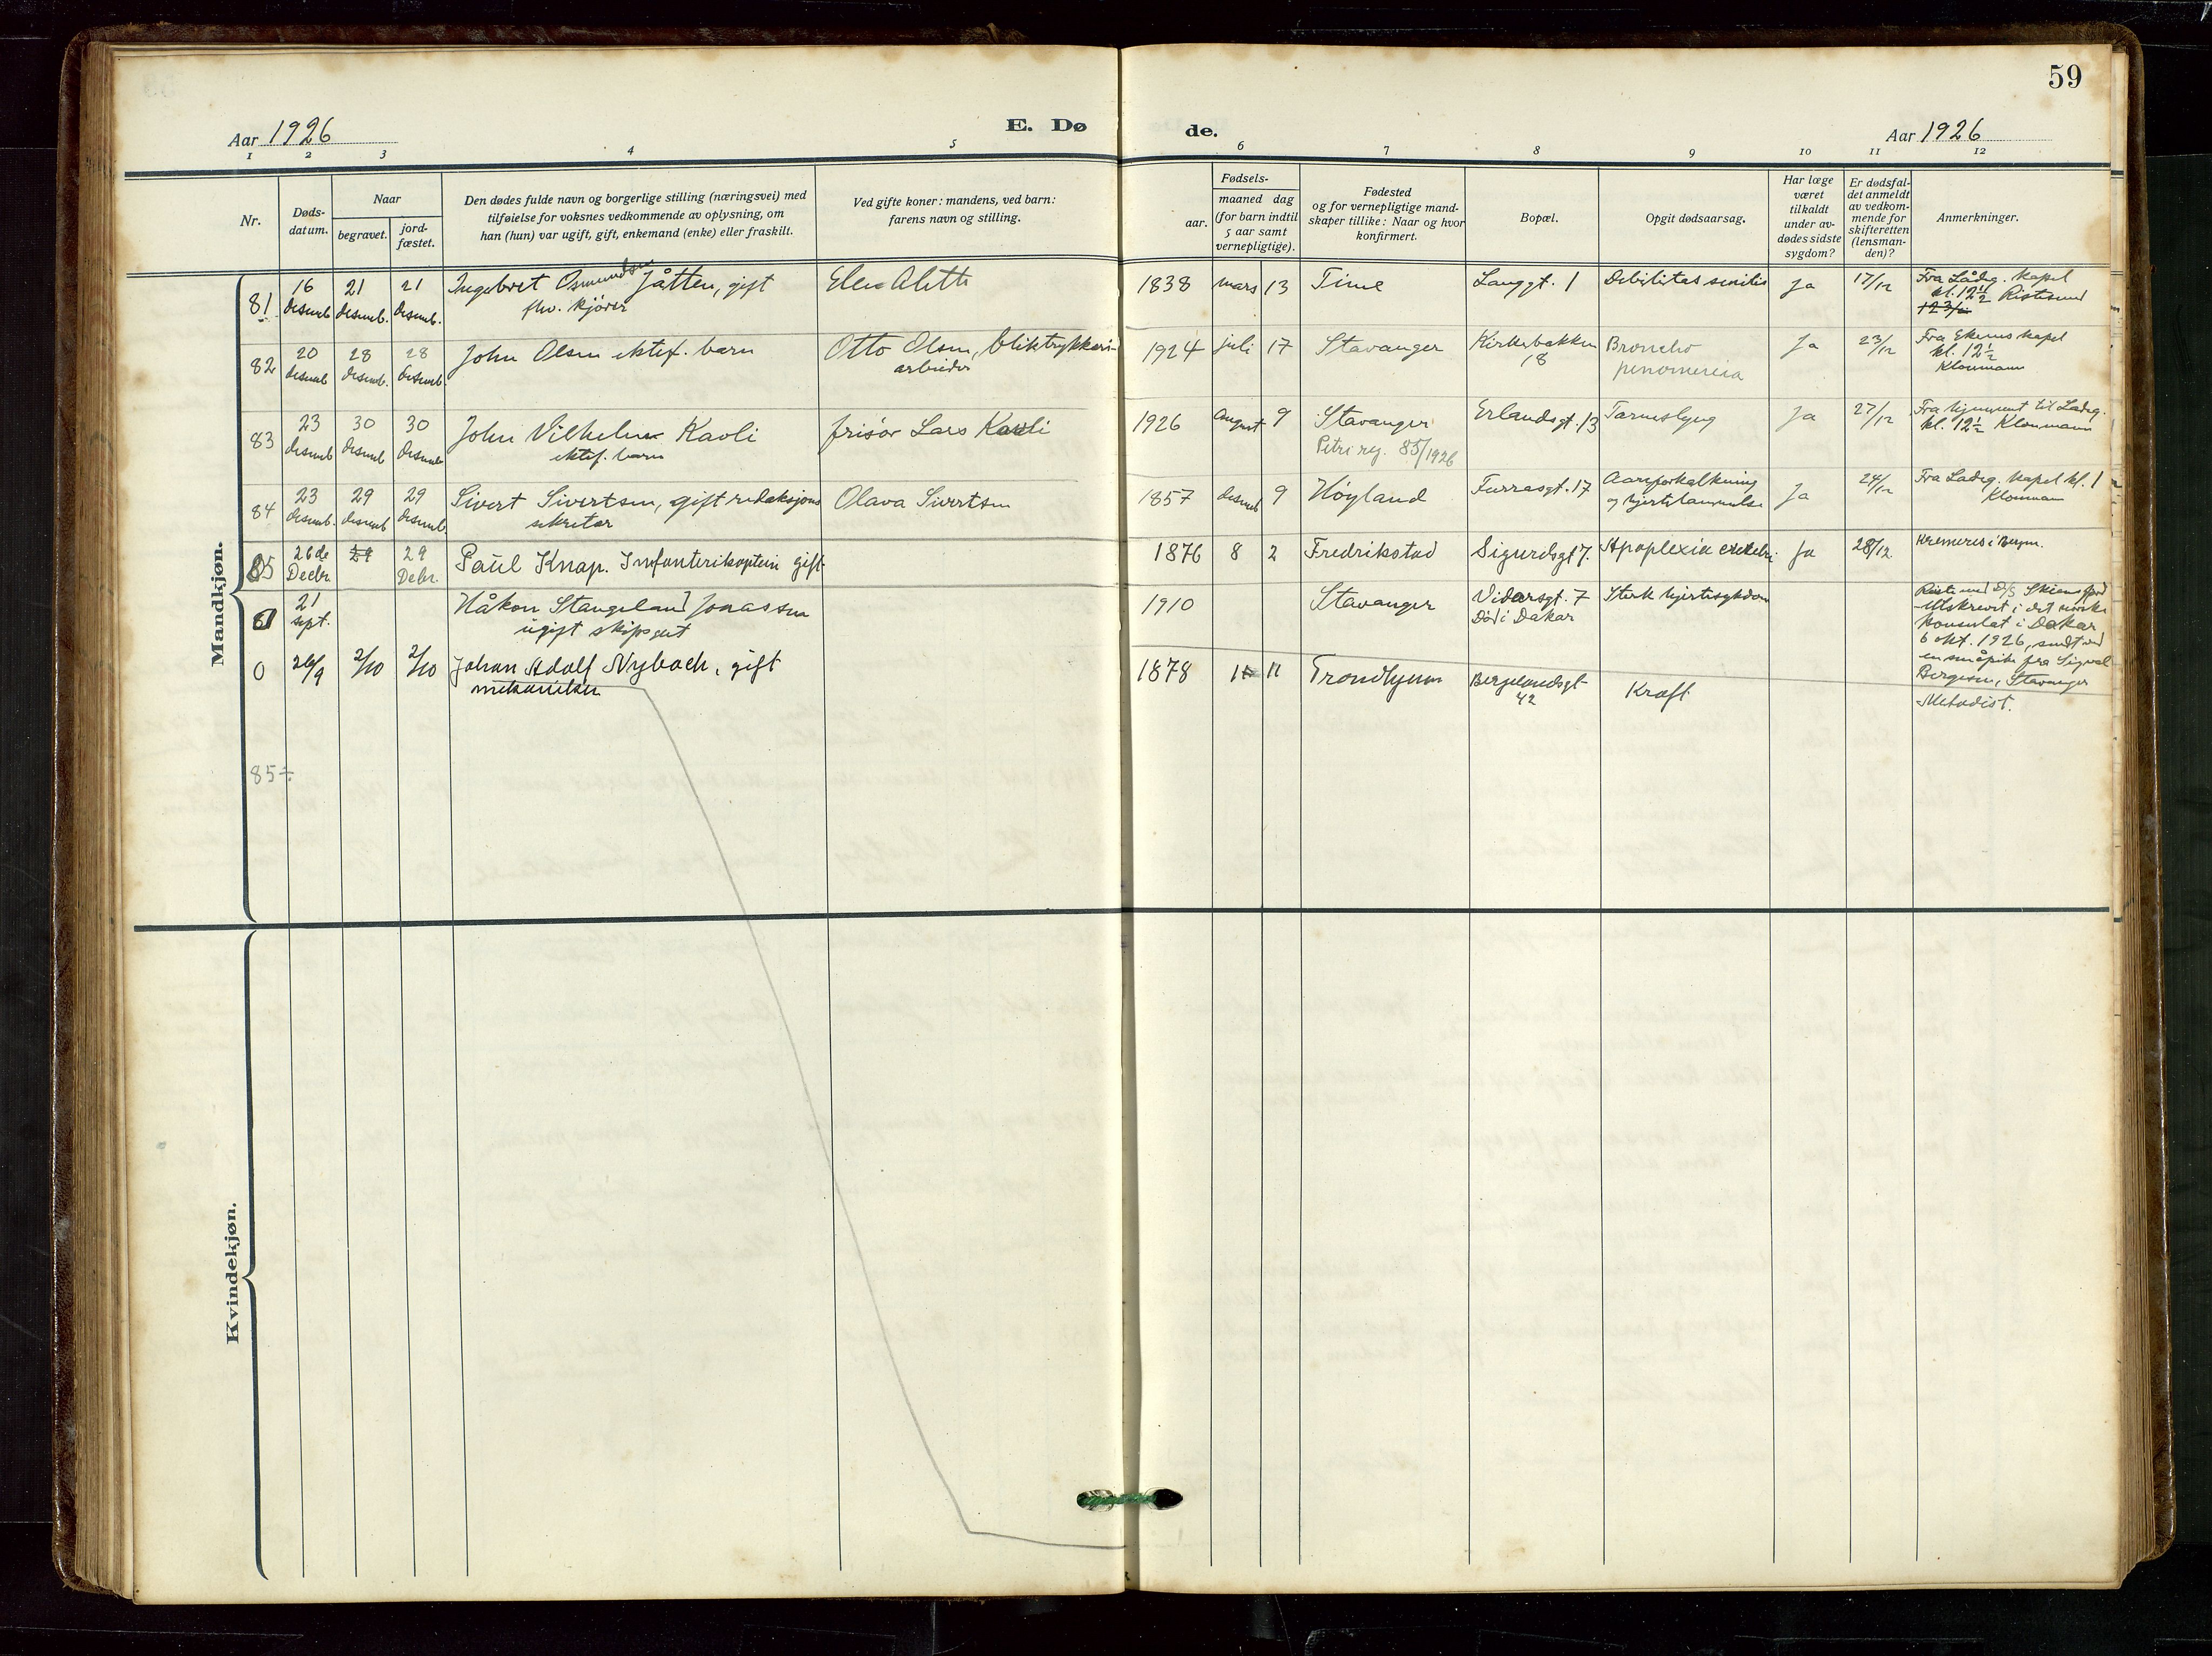 59
Aar 1926
E. Dø
de.
Aar 1926
1 2 3 4 5 6 7 8 9 10 11 12
Nr.
Døds-
datum.
Naar
begravet.
jord-
fæstet.
Den dødes fulde navn og borgerlige stilling (næringsvei) med
tilføielse for voksnes vedkommende av oplysning, om
han (hun) var ugift, gift, enkemand (enke) eller fraskilt.
Ved gifte koner: mandens, ved barn:
farens navn og stilling.
Fødsels-
aar.
maaned dag
(for barn indtil
5 aar samt
vernepligtige).
Fødested
og for vernepligtige mand-
skaper tillike: Naar og hvor
konfirmert.
Bopæl.
Opgit dødsaarsag.
Har læge
været
tilkaldt
under av-
dødes sidste
sygdom?
Er dødsfal-
det anmeldt
av vedkom-
mende for
skifteretten
(lensman-
den)?
Anmerkninger.
Mandkjøn.
81 16 desemb 21 desemb. 21 desemb. Ingebret Osmundsen Jåtten, gift
fhv. kjører
1838 mars 13 Time Langgt. 1 Debilitas senilis Ja 17/12 Fra Lådeg. kapel
kl. 12½
82 20 desemb 28 desemb. 28 desemb. John Olsen ektef. barn Otto Olsen, bliktrykkeri-
arbeider
1924 juli 17 Stavanger Kirkebakken 18 Broncho Ja 23/12 Fra Ekenes kapel
kl. 12½
Kloumann
83 23 desemb 30 desemb 30 desemb John Vilhelm Kavli frisør Lars Kavli
ektef. barn
1926 august 9 Stavanger Erlandsgt. 13 Ja 27/12 Fra hjemmet til Ladeg.
Petri reg. 85/1926 kl. 12½ Kloumann
84 23 desemb. 29 desemb 29 desemb. Sivert Sivertsen, gift redaksjons Olava Sivertsen
sekretær
1857 desemb 9 Høyland Furrasgt. 17 Aareforkalkning
og hjertelammelse Ja 24/12 Fra Ladeg. kapel kl. 1
Kloumann
85 26de Decbr. 29 29 Debr. Paul Knap. Infanterikaptein gift
1876 8 2 Fredrikstad Sigurdsgt 7. Apoplexia cerebri Ja 28/12 Kremeres i Bergen.
21 sept. Håkon Stangeland Jonassen
ugift skipsgut
1910 Stavanger Vidarsgt. 7
Død i Dakar Sterk hjertesykdom
Utskrevet i det norske
konsulat i Dakar
6 okt. 1926, sendt ved
Bergesen, Stavanger
0 26/9 2/10 2/10 Johan Adolf Nybach, gift
mekaniker
1878 11 Trondhjem Bergelandsgt
42 Kræft Metodist.
85÷
Kvindekjøn.